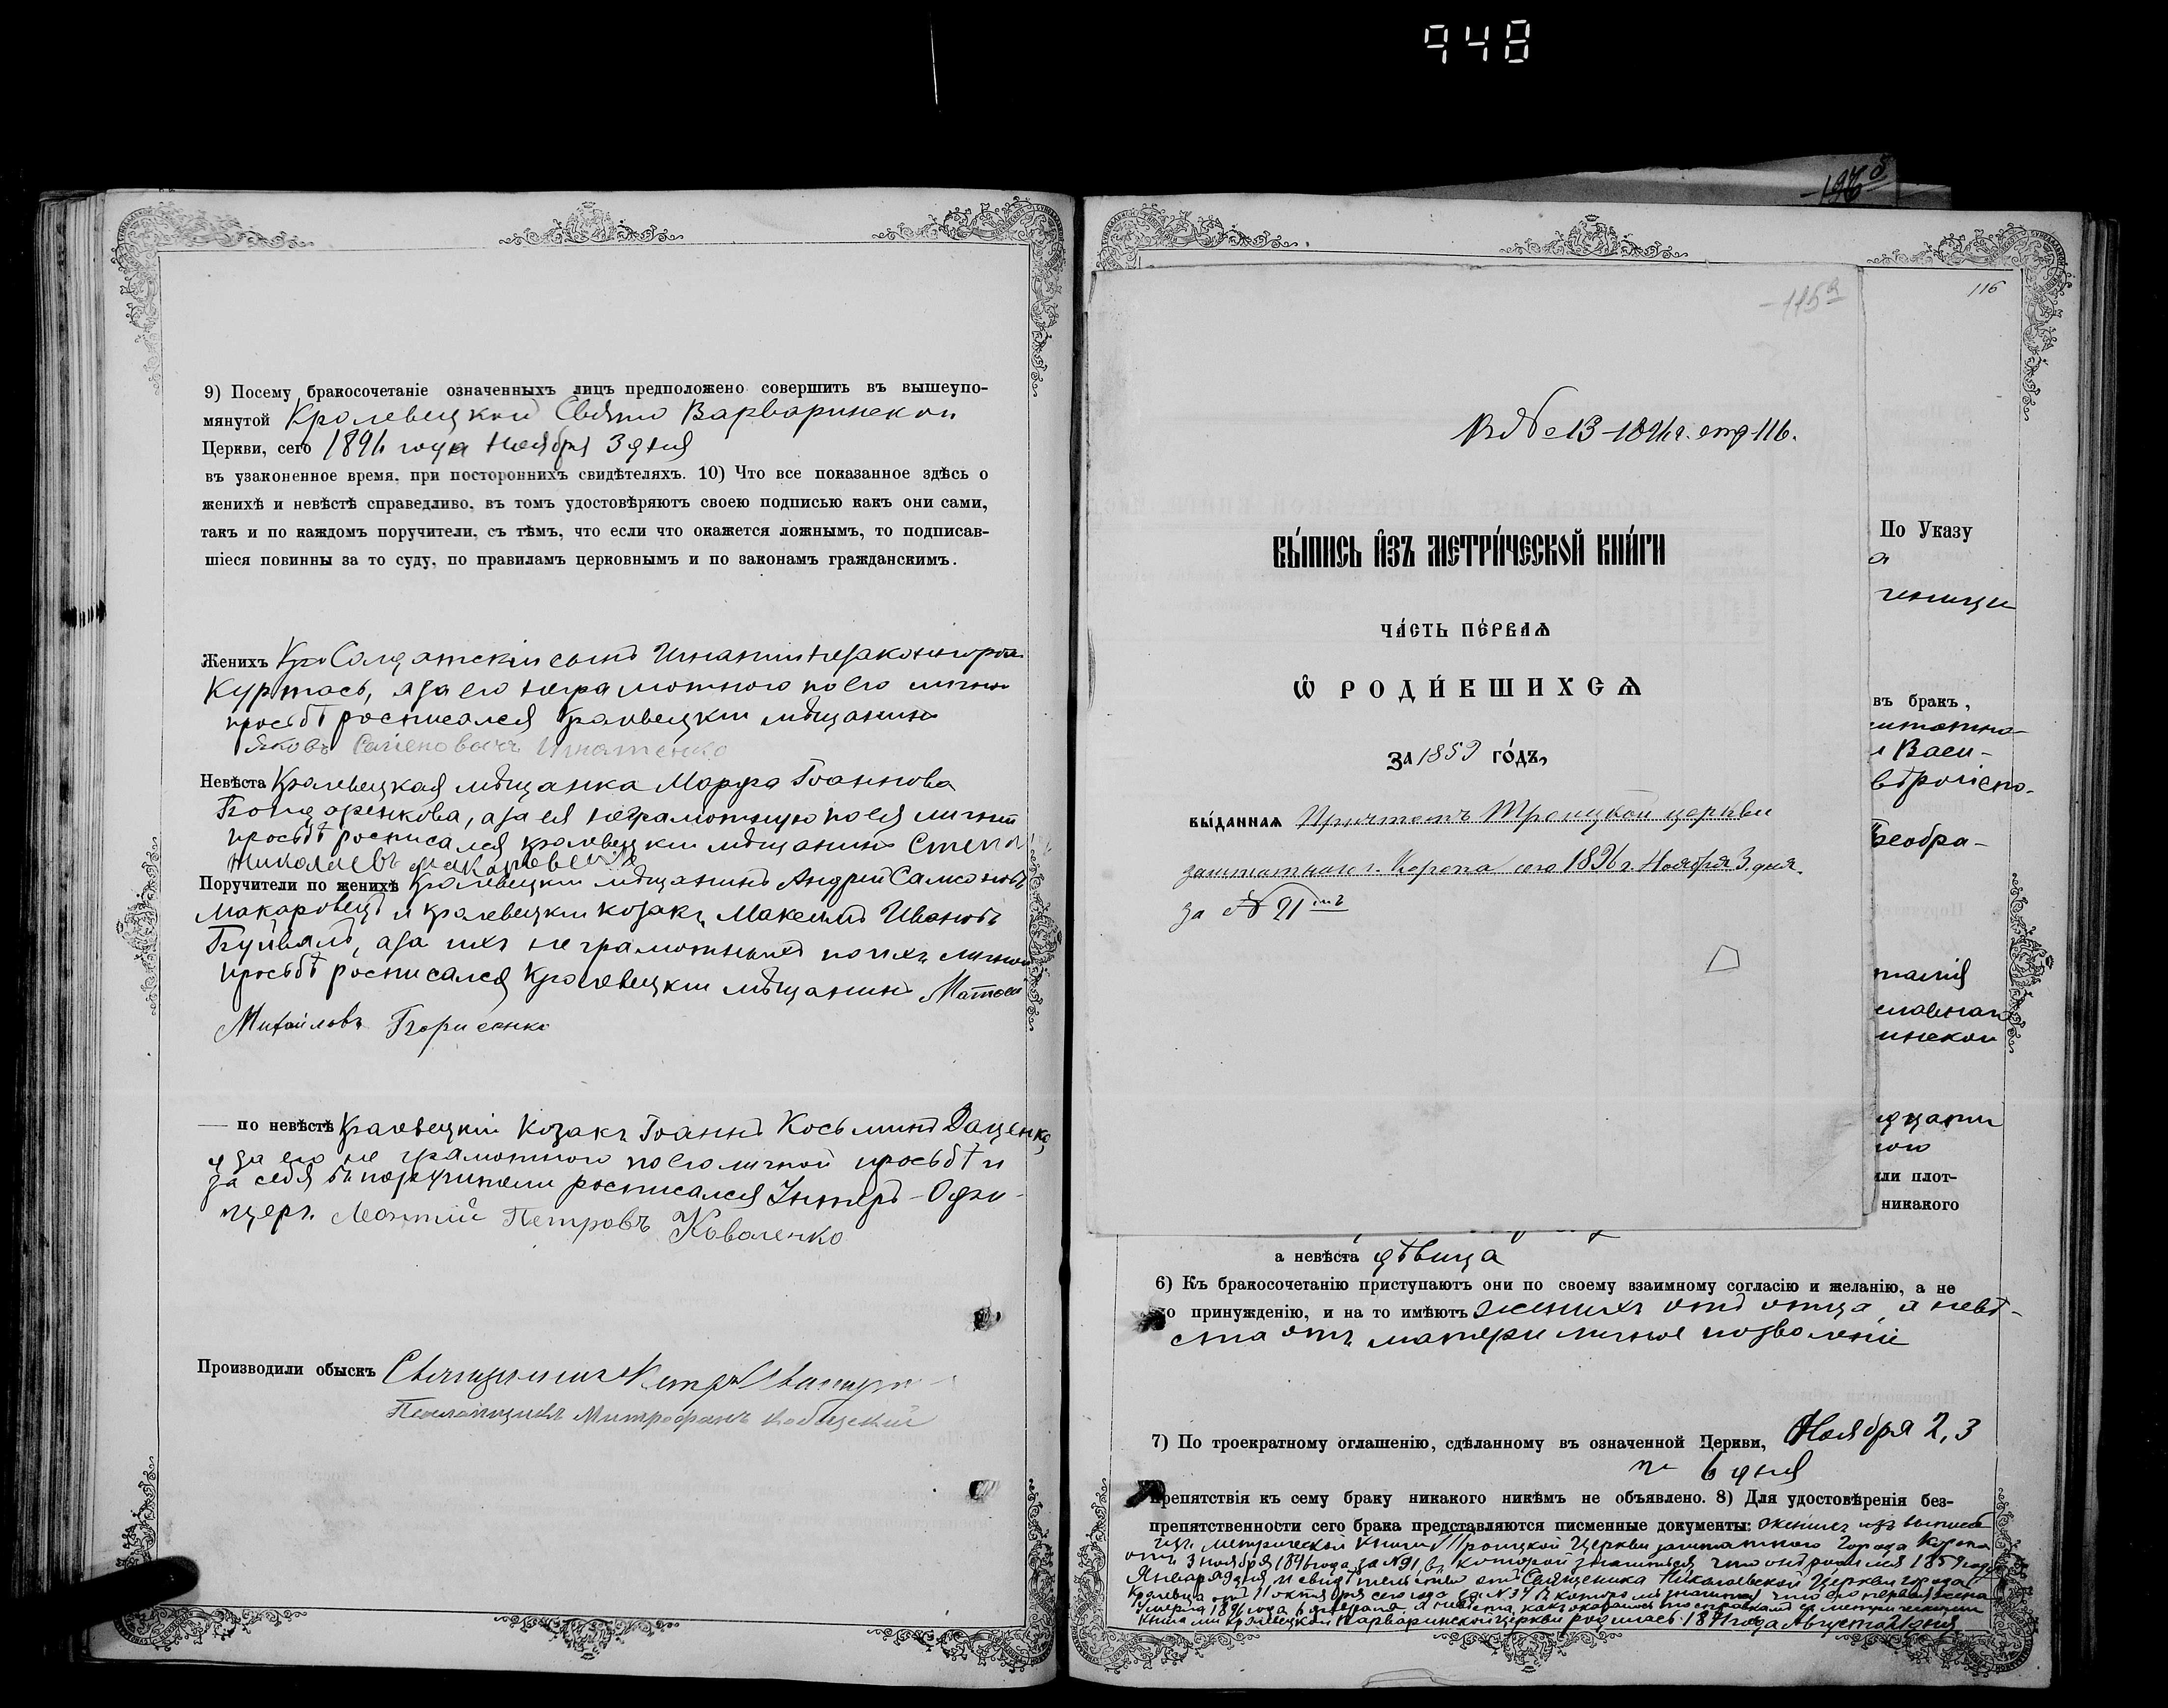 948
9) Посему бракосочетаніе означенныхъ лицъ предположено совершить въ вышеупо-
мянутой Кролевецкой Свято Варваринской
Церкви, сего 1896 года Ноября 3 дня
въ узаконенное время, при постороннихъ свидѣтеляхъ. 10) Что все показанное здѣсь о
женихѣ и невѣстѣ справедливо, въ томъ удостовѣряютъ своею подписью какъ они сами,
такъ и по каждомъ поручители, съ тѣмъ, что если что окажется ложнымъ, то подписав-
шіеся повинны за то суду, по правиламъ церковнымъ и по законамъ гражданскимъ.
Женихъ Солдатскій сынъ
Куртась, а за его неграмотного по его личн
просьбѣ росписался Кролевецкій мѣщанинъ
Яковъ Семеновичъ Игнатенко
Невѣста Кролевецкая мѣщанка Марфа Іоаннова
Бондаренкова, а за ея неграмотную по ея личной
просьбѣ росписался кролевецкій мѣщанинъ
Николаевъ
Поручители по женихѣ Кролевецкій мѣщанинъ Андрей Самсоновъ
Макаровецъ и кролевецкій козакъ Максимъ Ивановъ
а за ихъ неграмотныхъ по ихъ личной
просьбѣ росписался Кролевецкій мѣщанинъ
Михайловъ Борисенко
— по невѣстѣ Кролевецкій Козакъ Іоаннъ Косьминъ Даценко,
а за его не грамотного по его личной просьбѣ и
за себя росписался Унтеръ-Офи-
церъ Петровъ Коваленко
Производили обыскъ Священникъ
Псаломщикъ Митрофанъ
116
115
№ 13-1896 г. стр 116.
ВЫ́ПИСЬ И҆ЗЪ МЕТРИ́ЧЕСКОЙ КНИ́ГИ
ЧА́СТЬ ПЕ́РВАѦ
Ѡ҆ РОДИ́ВШИХСѦ
ЗА 1859 ГО́ДЪ,
ВЫ́ДАННАѦ Причтомъ Троицкой церкви
заштатнаго г. Коропа сего 1896 г. Ноября 3. дня.
за № 91
По Указу
въ брак,
и Васи-
ли плот-
никакого
а невѣста дѣвица
6) Къ бракосочетанію приступаютъ они по своему взаимному согласію и желанію, а не
по принужденію, и на то имѣютъ женихъ отъ отца, а невѣ-
ста отъ матери личное позволеніе
7) По троекратному оглашенію, сдѣланному въ означенной Церкви, Ноября 2, 3
и 6 дня
препятствія къ сему браку никакого никѣмъ не объявлено. 8) Для удостовѣренія без-
препятственности сего брака представляются писменные документы: женихъ изъ выписи
изъ метрической книги Троицкой Церкви заштатного Города Коропа
отъ 3 ноября 1896 года за № 91 въ которой значиться что онъ родился 1859 года
Января дня и свидѣтельство отъ Священика Николаевской Церкви города
Кролевца отъ 11 октября сего года за № 34 въ которомъ значится что его первая жена
умерла 1896 года а невѣста какъ оказалось по справкамъ съ метрическими
книгами Кролевецкой Варваринской церкви родилась 1871 года Августа 21 дня